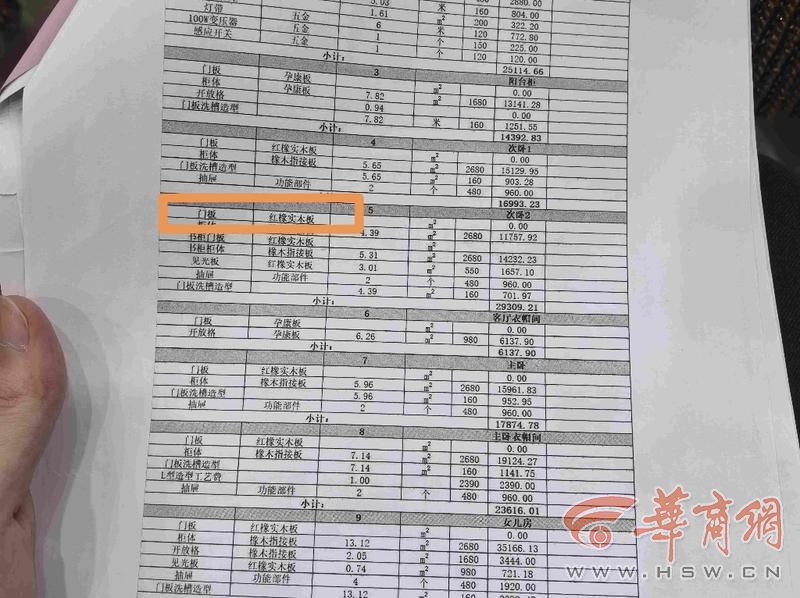 2880.00
灯带 5.03 米 160 804.00
1.61 m² 200 322.20
100W变压器 五金 6 米 120 772.80
感应开关 五金 1 个 150 225.00
五金 1 个 120 120.00
小计： 25114.66
3 阳台柜
门板 孕康板 m² 0.00
柜体 孕康板 7.82 m² 1680 13141.28
开放格 0.94 0.00
门板洗槽造型 7.82 米 160 1251.55
小计： 14392.83
4 次卧1
门板 红橡实木板 m² 0.00
柜体 橡木指接板 5.65 m² 2680 15129.95
门板洗槽造型 5.65 m² 160 903.28
抽屉 功能部件 2 个 480 960.00
16993.23
5 次卧2
门板 红橡实木板 m² 0.00
柜体 4.39 m² 2680 11757.92
书柜门板 红橡实木板 m²
书柜柜体 橡木指接板 5.31 m² 2680 14232.23
见光板 红橡实木板 3.01 m² 550 1657.10
抽屉 功能部件 2 个 480 960.00
门板洗槽造型 4.39 m² 160 701.97
小计： 29309.21
6 客厅衣帽间
门板 孕康板 m² 0.00
开放格 孕康板 6.26 m² 980 6137.90
小计： 6137.90
7 主卧
门板 红橡实木板 m² 0.00
柜体 橡木指接板 5.96 m² 2680 15961.83
门板洗槽造型 5.96 m² 160 952.95
抽屉 功能部件 2 个 480 960.00
小计： 17874.78
8 主卧衣帽间
门板 红橡实木板 m² 0.00
柜体 橡木指接板 7.14 m² 2680 19124.27
门板洗槽造型 7.14 m² 160 1141.75
L型造型工艺费 1.00 2390 2390.00
抽屉 功能部件 2 个 480 960.00
小计： 23616.01
9 女儿房
门板 红橡实木板 m² 0.00
柜体 橡木指接板 13.12 m² 2680 35166.13
开放格 橡木指接板 2.05 m² 1680 3444.00
见光板 红橡实木板 0.74 m² 980 721.18
抽屉 功能部件 4 个 480 1920.00
门板洗槽造型 13.12 m² 160
華商網
WWW.HSW.CN